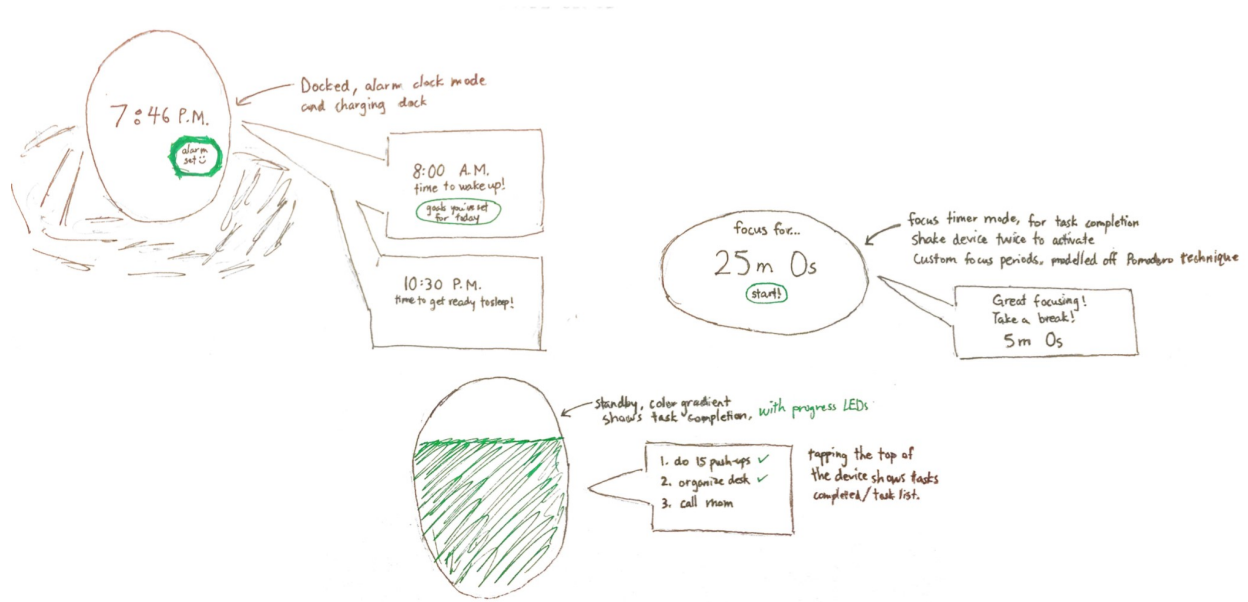 7:46 P.M.
alarm
set
Docked, alarm clock mode
and charging dock
8:00 A.M.
time to wake up!
goals you've set
for today
10:30 P.M.
time to get ready to sleep!
focus for...
25m 0s
start!
focus timer mode, for task completion
Shake device twice to activate
Custom focus periods, modelled off Pomodoro technique
Great focusing!
Take a break!
5m 0s
standby, color gradient
shows task completion, with progress LEDs
1. do 15 push-ups ✓
2. organize desk ✓
3. call mom
tapping the top of
the device shows tasks
completed/task list.